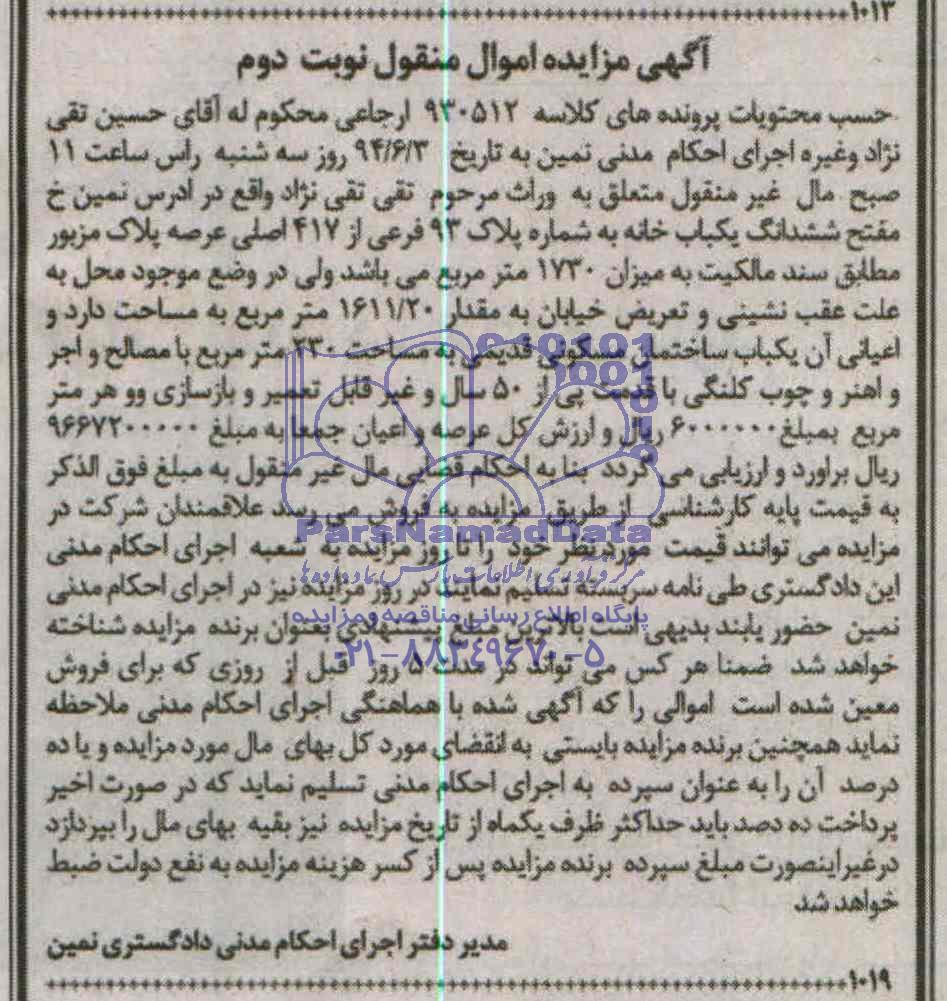 ۱۰۱۳
آگهی مزایده اموال منقول نوبت دوم
حسب محتویات پرونده های کلاسه ۹۳۰۵۱۲ ارجاعی محکوم له آقای حسین تقی
نژاد وغیره اجرای احکام مدنی نمین به تاریخ ۹۴/۶/۳ روز سه شنبه راس ساعت ۱۱
صبح مال غیر منقول متعلق به وراث مرحوم تقی تقی نژاد واقع در ادرس نمین خ
مفتح ششدانگ یکباب خانه به شماره پلاک ۹۳ فرعی از ۴۱۷ اصلی عرصه پلاک مزبور
مطابق سند مالکیت به میزان ۱۷۳۰ متر مربع می باشد ولی در وضع موجود محل به
علت عقب نشینی و تعریض خیابان به مقدار ۱۶۱۱/۲۰ متر مربع به مساحت دارد و
اعیانی آن یکباب ساختمان مسکونی قدیمی به مساحت ۲۳۰ متر مربع با مصالح و اجر
و اهنر و چوب کلنگی با قدمت پی از ۵۰ سال و غیر قابل تعمیر و بازسازی وو هر متر
مربع بمبلغ ۶۰۰۰۰۰۰ ریال و ارزش کل عرصه و اعیان جمعا به مبلغ ۹۶۶۷۲۰۰۰۰۰
ریال براورد و ارزیابی می گردد بنا به احکام قضایی مال غیر منقول به مبلغ فوق الذکر
به قیمت پایه کارشناسی از طریق مزایده به فروش می رسد علاقمندان شرکت در
مزایده می توانند قیمت موردنظر خود را تا روز مزایده به شعبه اجرای احکام مدنی
این دادگستری طی نامه سربسته تسلیم نمایند در روز مزایده نیز در اجرای احکام مدنی
نمین حضور یابند بدیهی است بالاترین مبلغ پیشنهادی بعنوان برنده مزایده شناخته
خواهد شد ضمنا هر کس می تواند در مدت ۵ روز قبل از روزی که برای فروش
معین شده است اموالی را که آگهی شده با هماهنگی اجرای احکام مدنی ملاحظه
نماید همچنین برنده مزایده بایستی به انقضای مورد کل بهای مال مورد مزایده و یا ده
درصد آن را به عنوان سپرده به اجرای احکام مدنی تسلیم نماید که در صورت اخیر
پرداخت ده دصد باید حداکثر ظرف یکماه از تاریخ مزایده نیز بقیه بهای مال را بپردازد
درغیراینصورت مبلغ سپرده برنده مزایده پس از کسر هزینه مزایده به نفع دولت ضبط
خواهد شد
مدیر دفتر اجرای احکام مدنی دادگستری نمین
۱۰۱۹
ParsNamadData
مرکز فرآوری اطلاعات پارس نماد داده ها
پایگاه اطلاع رسانی مناقصه و مزایده
۰۲۱-۸۸۳۴۹۶۷۰-۵